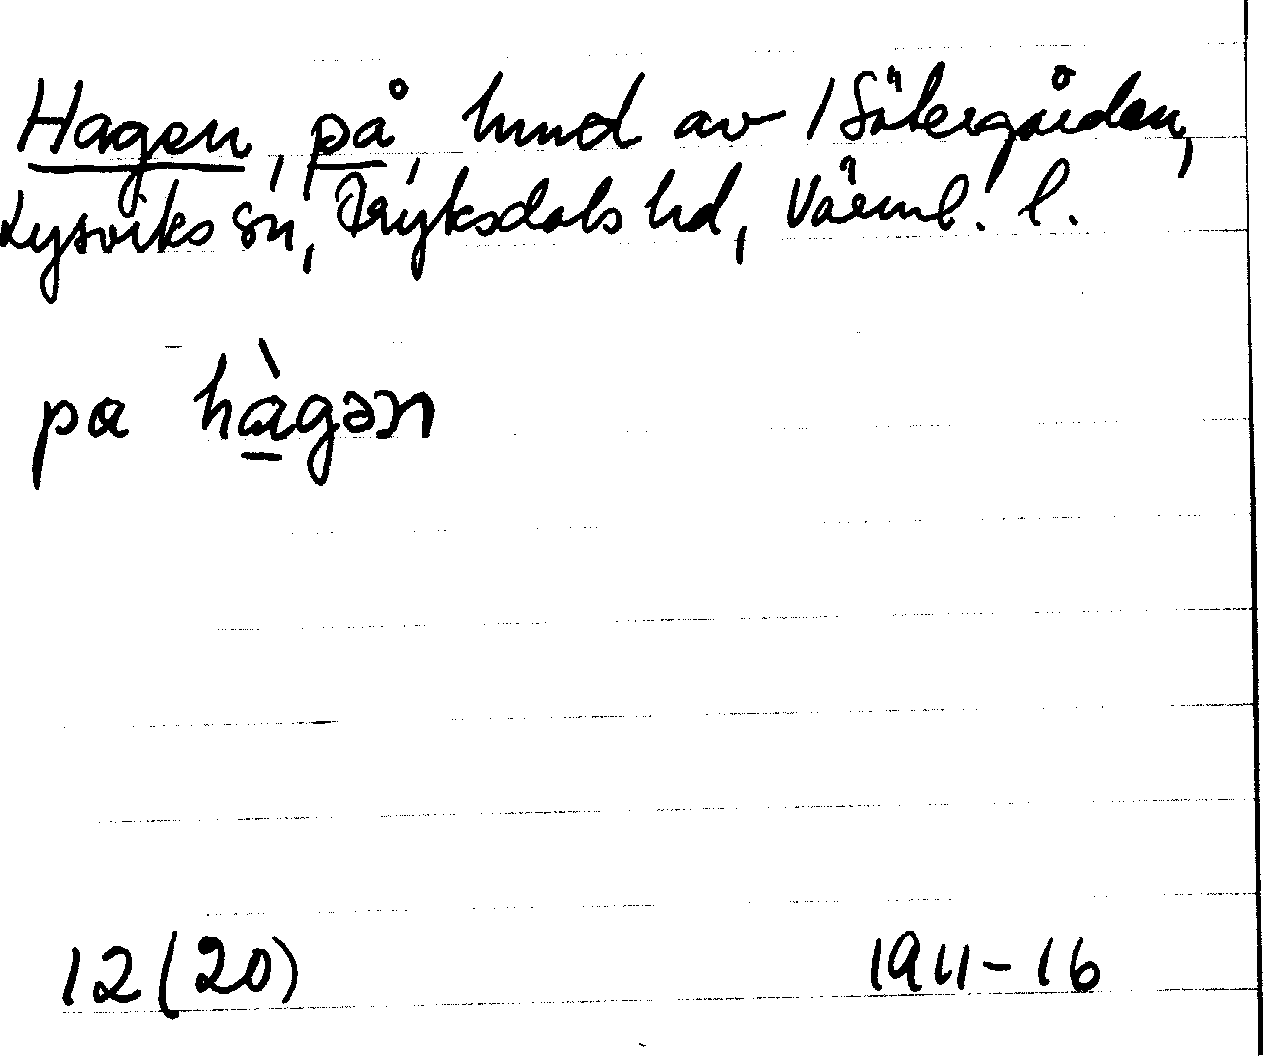 Hagen, på, hmd av 1 Sätergården,
Lysviks sn, Fryksdals hd, Värml. l.
pa hàgən
12 (20) 1911-16